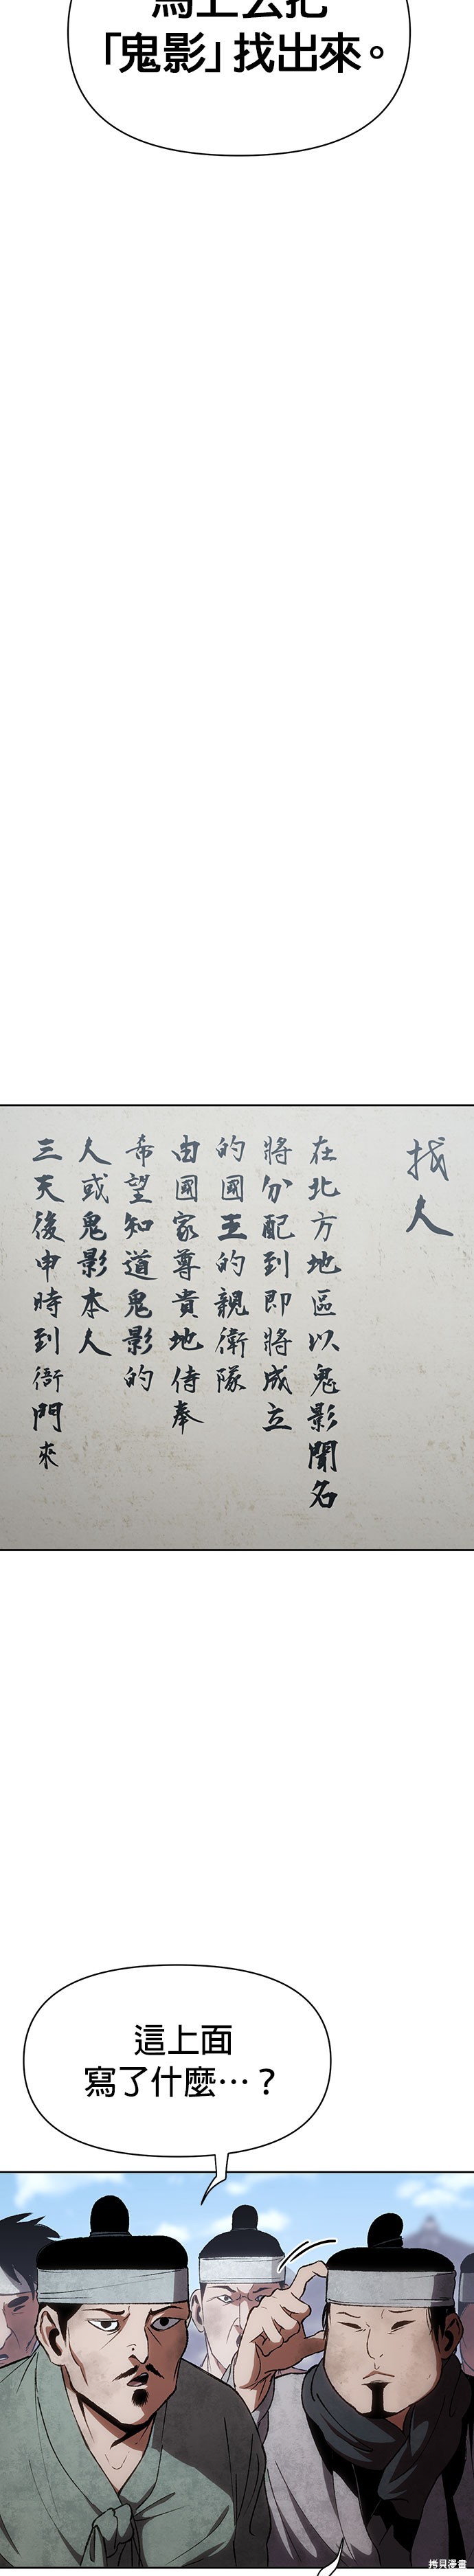 馬上去把
「鬼影」找出來。
找人
在北方地區以鬼影聞名
將分配到即將成立
的國王的親衛隊
由國家尊貴地侍奉
希望知道鬼影的
人或鬼影本人
三天後申時到衙門來
這上面
寫了什麼⋯？
拷貝漫畫